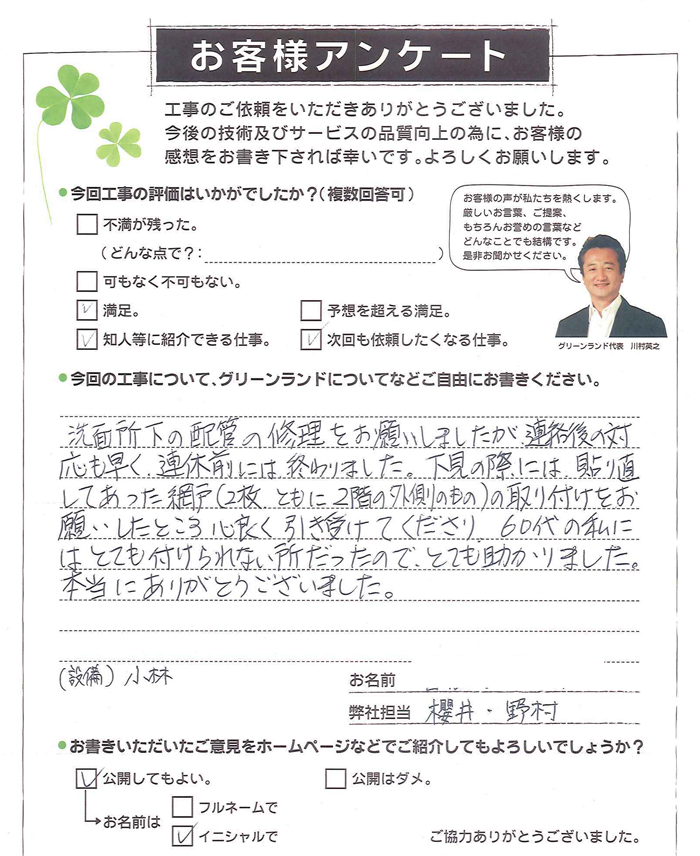 お客様アンケート
工事のご依頼をいただきありがとうございました。
今後の技術及びサービスの品質向上の為に、お客様の
感想をお書き下されば幸いです。よろしくお願いします。
●今回工事の評価はいかがでしたか?(複数回答可)
お客様の声が私たちを熱くします。
厳しいお言葉、ご提案、
もちろんお誉めの言葉など
どんなことでも結構です。
是非お聞かせください。
グリーンランド代表 川村英之
不満が残った。
(どんな点で?: )
可もなく不可もない。
満足。
予想を超える満足。
知人等に紹介できる仕事。
次回も依頼したくなる仕事。
●今回の工事について、グリーンランドについてなどご自由にお書きください。
洗面所下の配管の修理をお願いしましたが、連絡後の対
応も早く、連休前には終わりました。下見の際には、貼り直
してあった網戸(2枚 ともに2階の外側のもの)の取り付けをお
願いしたところ 心良く 引き受けてくださり、60代の私に
はとても付けられない所だったので、とても助かりました。
本当にありがとうございました。
(設備) 小林
お名前
弊社担当 櫻井・野村
●お書きいただいたご意見をホームページなどでご紹介してもよろしいでしょうか?
公開してもよい。
公開はダメ。
お名前は
フルネームで
イニシャルで
ご協力ありがとうございました。